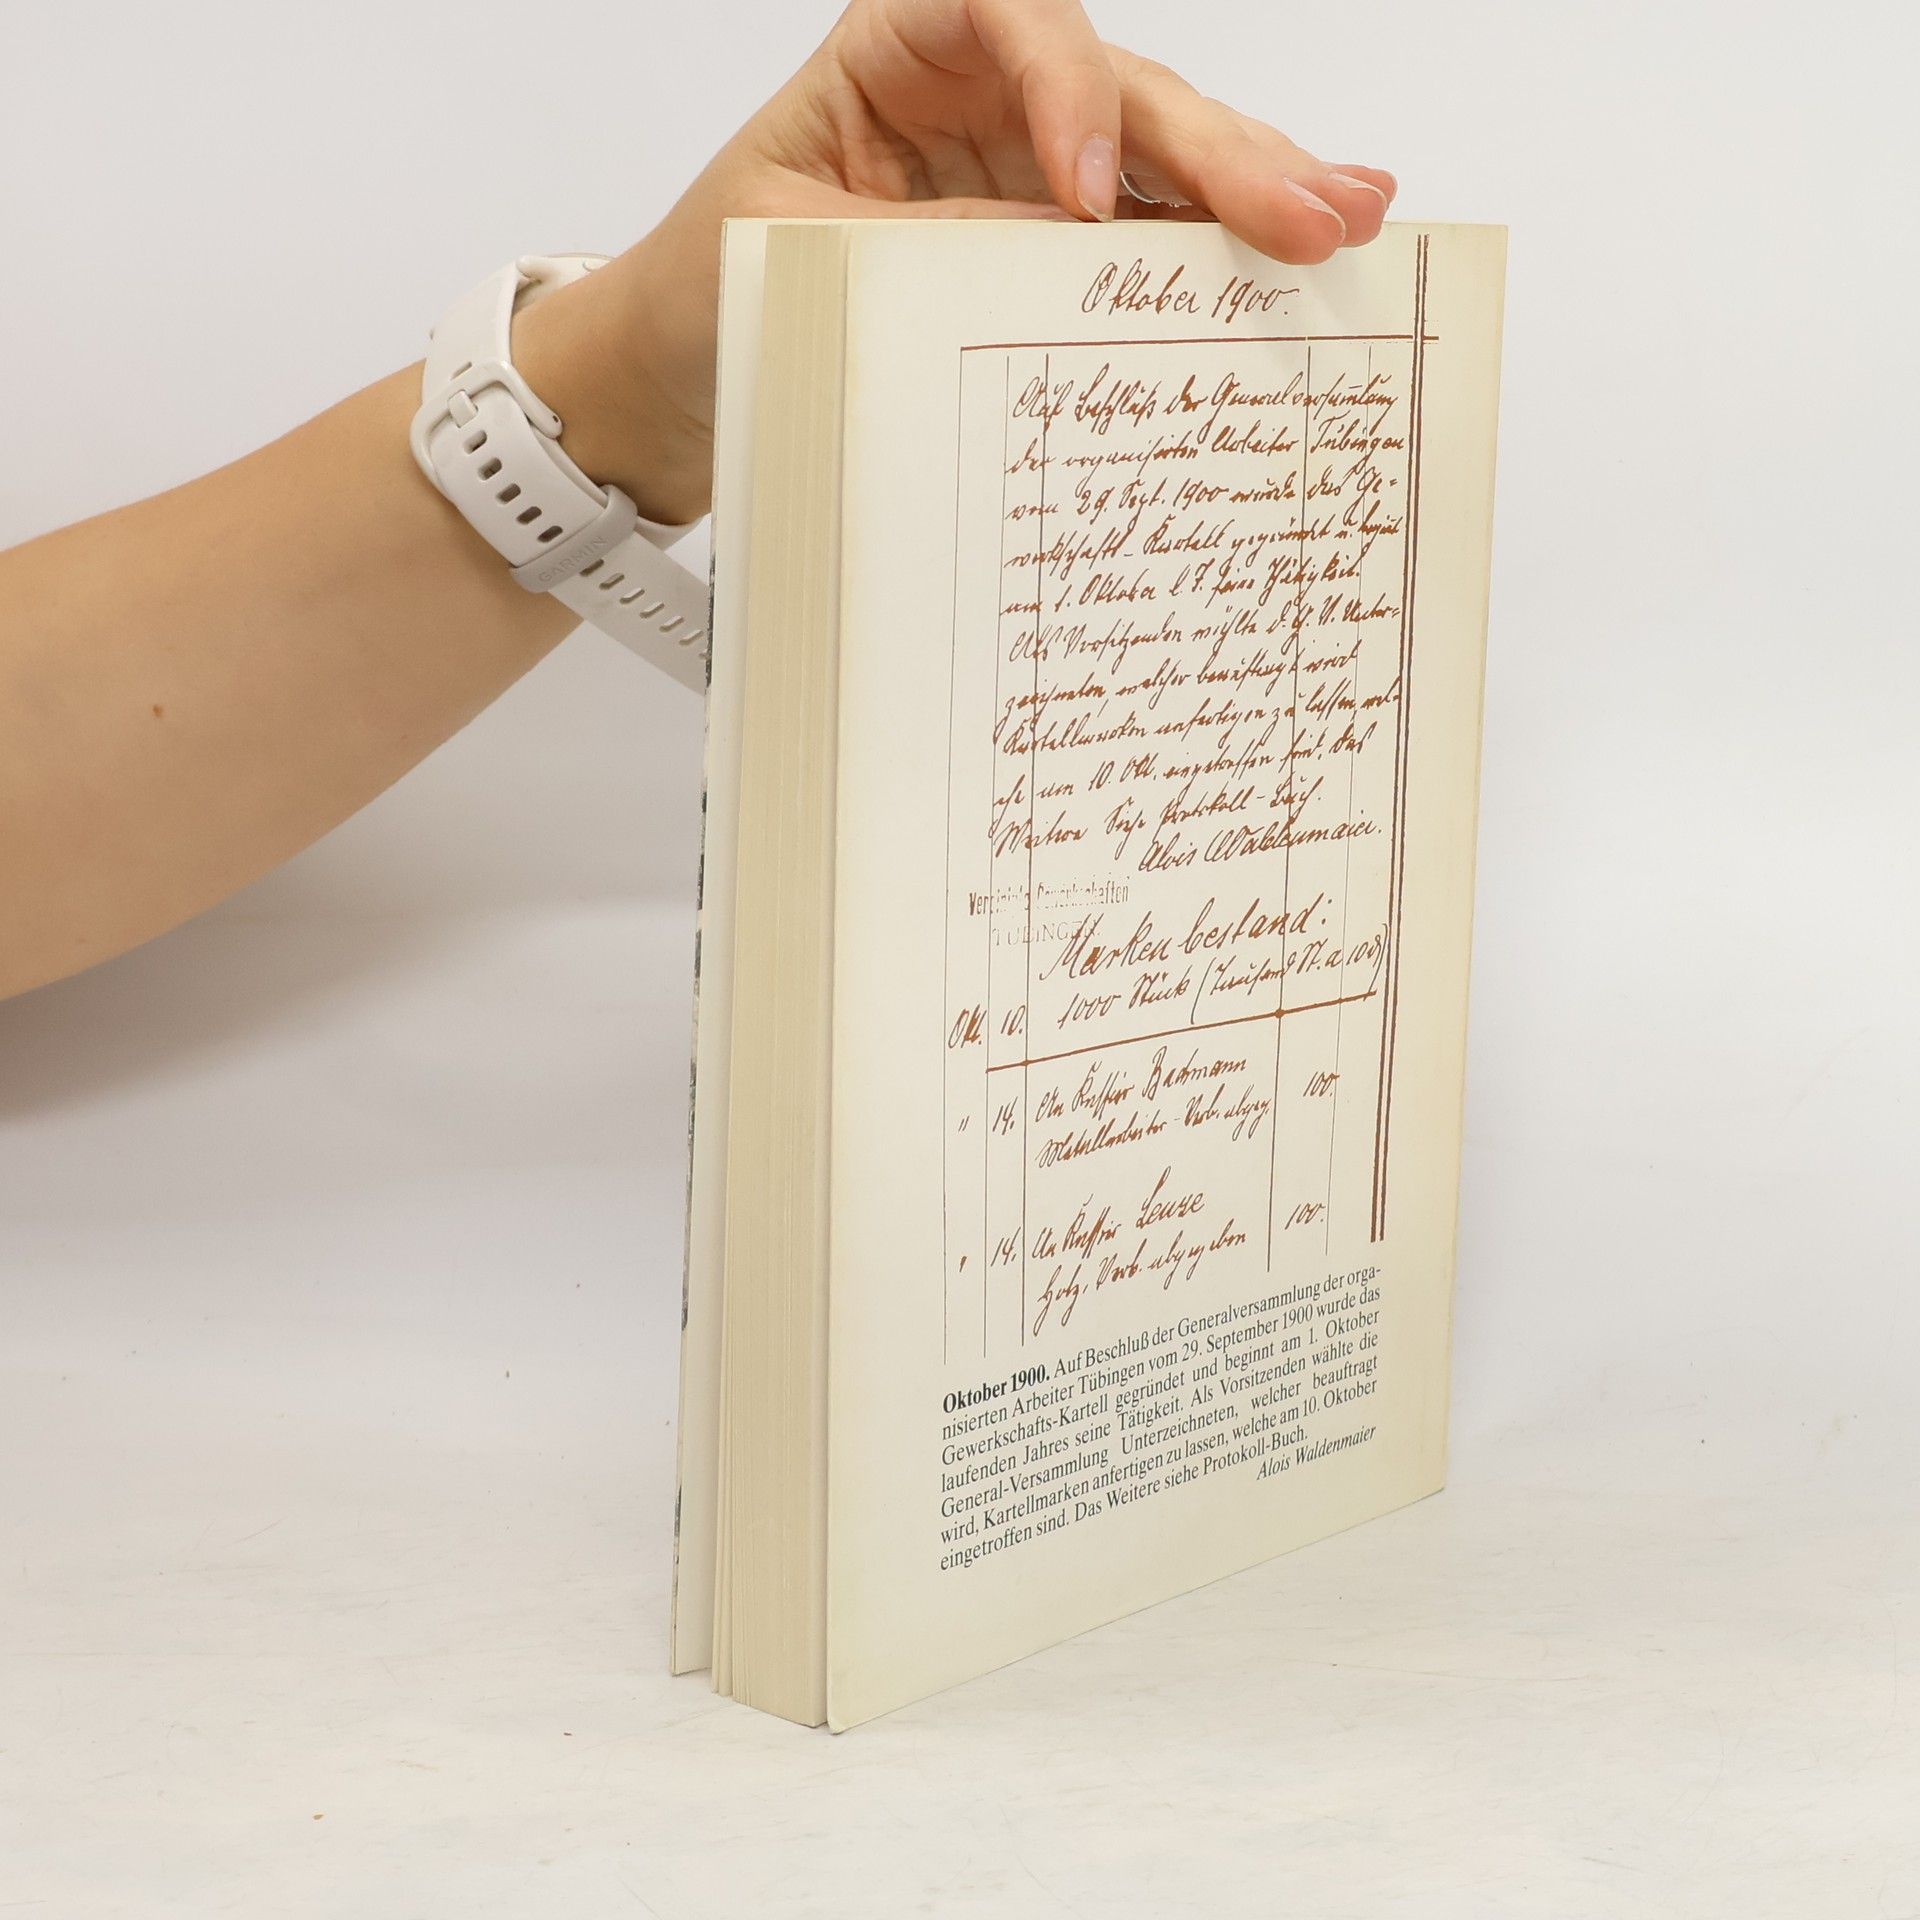 Oktober 1900.
Auf Beschluß der Generalversammlung
der organisirten Arbeiter Tübingen
vom 29. Sept. 1900 wurde das Ge-
werkschafts-Kartell gegründet u. beginnt
am 1. Oktober l. J. seine Thätigkeit.
Als Vorsitzenden wählte d. G. V. Unter-
zeichneten, welcher beauftragt wird
Kartellmarken anfertigen zu lassen, wel-
che am 10. Okt. eingetroffen sind. Das
Weitere Siehe Protokoll-Buch.
Alois Waldenmaier.
Vereinigte Gewerkschaften
TÜBINGEN.
Markenbestand:
Okt. 10. 1000 Stück (Tausend St. a 10 ₰)
" 14. An Kassier Bachmann 100.
Metallarbeiter-Verb. abgeg.
" 14. An Kassier Leuze 100.
Holz. Verb. abgegeben
Oktober 1900. Auf Beschluß der Generalversammlung der orga-
nisierten Arbeiter Tübingen vom 29. September 1900 wurde das
Gewerkschafts-Kartell gegründet und beginnt am 1. Oktober
laufenden Jahres seine Tätigkeit. Als Vorsitzenden wählte die
General-Versammlung Unterzeichneten, welcher beauftragt
wird, Kartellmarken anfertigen zu lassen, welche am 10. Oktober
eingetroffen sind. Das Weitere siehe Protokoll-Buch.
Alois Waldenmaier
GARMIN